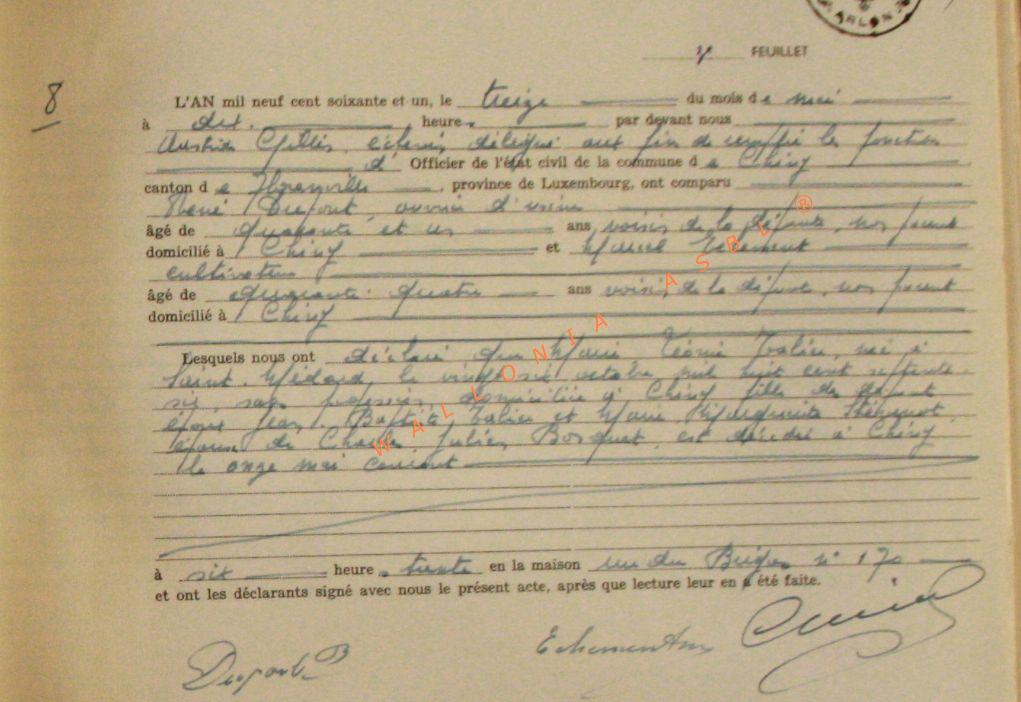 ARLON
FEUILLET
8
L'AN mil neuf cent soixante et un, le treize du mois de mai
à dix heure s par devant nous
Gillis, échevin délégué aux fin de remplir les fonction
d' Officier de l'état civil de la commune de Chiny
canton de Florenville, province de Luxembourg, ont comparu
René Dupont, ouvrier d'usine
âgé de quarante et un ans, voisin de la défunte, non parent
domicilié à Chiny et Marcel
cultivateur
âgé de quarante quatre ans voisin de la défunte, non parent
domicilié à Chiny
Lesquels nous ont déclaré que Marie Léonie née à
Saint-Médard, le vingt six octobre mil huit cent septante-
six, sans profession, domiciliée à Chiny fille des défunt
époux Jean Baptiste et Marie Marguerite
épouse de Charles Julien Bosquet, est décédée à Chiny
le onze mai courant
à six heure s trente en la maison rue du n° 170
et ont les déclarants signé avec nous le présent acte, après que lecture leur en a été faite.
WALLONIA ASBL ®